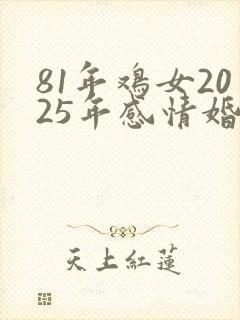 81年鸡女20
25年感情婚
天上紅蓮